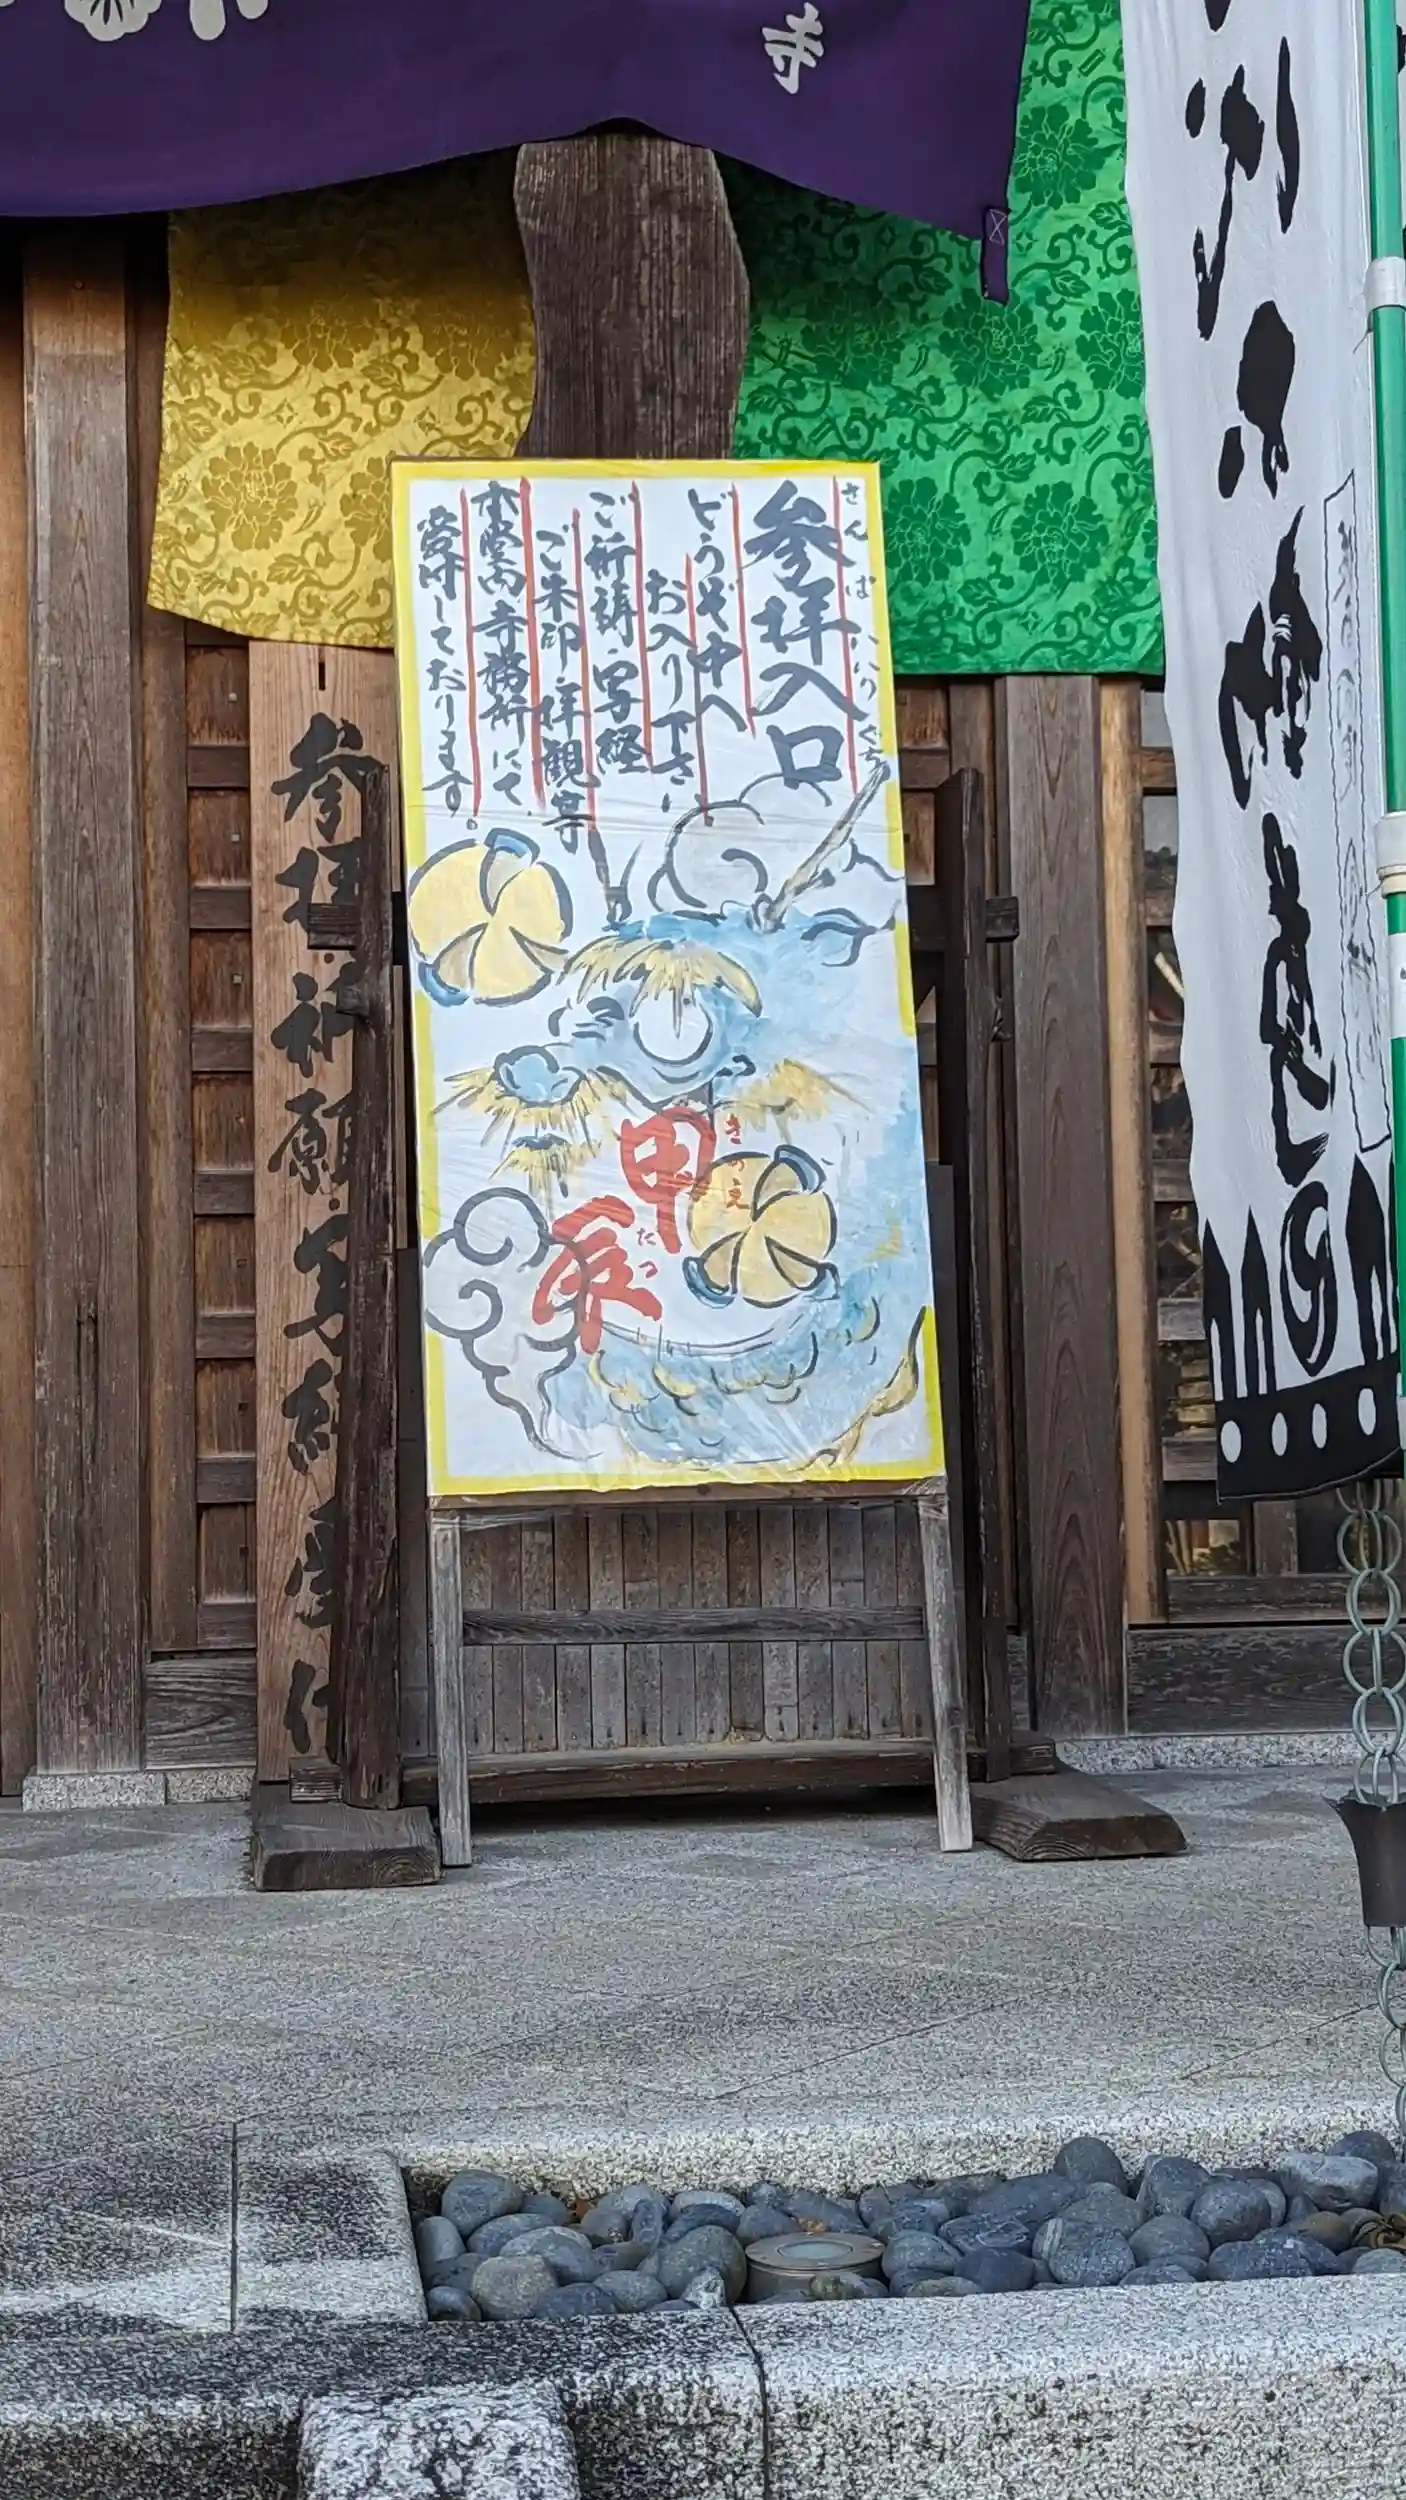 寺
参拝入口
さんぱいいりぐち
どうぞ中へ
お入り下さい
ご祈祷・写経
ご朱印・拝観等
本堂内寺務所にて
受付しております。
甲辰
きのえ
たつ
参拝・祈願・写経受付